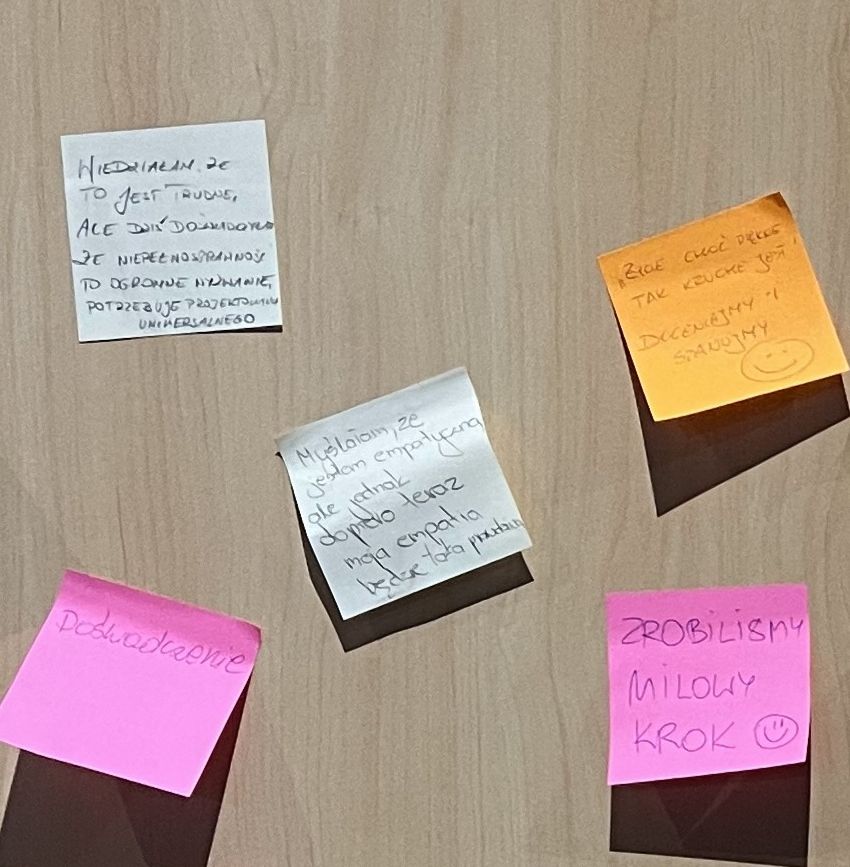 WIEDZIAŁAM, ŻE
TO JEST TRUDNE,
ALE DZIŚ DOŚWIADCZYŁAM
ŻE NIEPEŁNOSPRAWNOŚĆ
TO OGROMNE WYZWANIE,
POTRZEBUJE PROJEKTOWANIA
UNIWERSALNEGO
ŻYCIE CHOĆ PIĘKNE
TAK KRUCHE JEST
DOCENIAJMY I
SZANUJMY
Myślałam, że
jestem empatyczna
ale jednak
dopiero teraz
moja empatia
będzie taka prawdziwa
Doświadczenie
ZROBILIŚMY
MILOWY
KROK